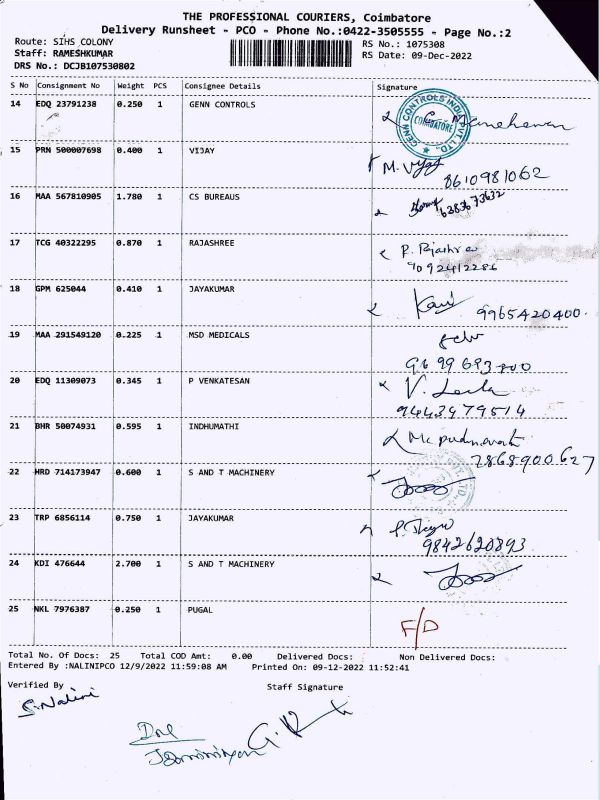 THE PROFESSIONAL COURIERS, Coimbatore
Delivery Runsheet - PCO - Phone No.:0422-3505555 - Page No.:2
Route: SIHS COLONY
RS No.: 1075308
Staff: RAMESHKUMAR
RS Date: 09-Dec-2022
DRS No.: DCJB107530802
S No Consignment No Weight PCS Consignee Details Signature
14 EDQ 23791238 0.250 1 GENN CONTROLS
COIMBATORE
15 PRN 500007698 0.400 1 VIJAY M. Vijay
8610981062
16 MAA 567810905 1.780 1 CS BUREAUS
6383673632
17 TCG 40322295 0.870 1 RAJASHREE P. Rajashree
9092412286
18 GPM 625044 0.410 1 JAYAKUMAR
9965420400.
19 MAA 291549120 0.225 1 MSD MEDICALS
20 EDQ 11309073 0.345 1 P VENKATESAN V. Leela
9443979514
21 BHR 50074931 0.595 1 INDHUMATHI
7868900627
22 HRD 714173947 0.600 1 S AND T MACHINERY
23 TRP 6856114 0.750 1 JAYAKUMAR
9842620893
24 KDI 476644 2.700 1 S AND T MACHINERY
25 NKL 7976387 0.250 1 PUGAL F/D
Total No. Of Docs: 25 Total COD Amt: 0.00 Delivered Docs: Non Delivered Docs:
Entered By :NALINIPCO 12/9/2022 11:59:08 AM Printed On: 09-12-2022 11:52:41
Verified By Staff Signature
S. Nalini